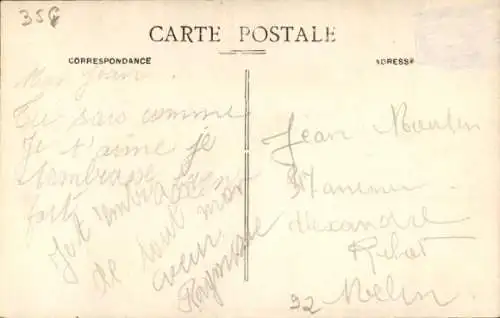 356
CARTE POSTALE
CORRESPONDANCE
ADRESSE
Mon Jean.
Tu sais comme
Je t'aime je
t'embrasse bien
fort
Je t'embrasse
de tout mon
cœur
Raymonde
Jean Moulin
37 avenue
Alexandre
Ribot
92 Melun